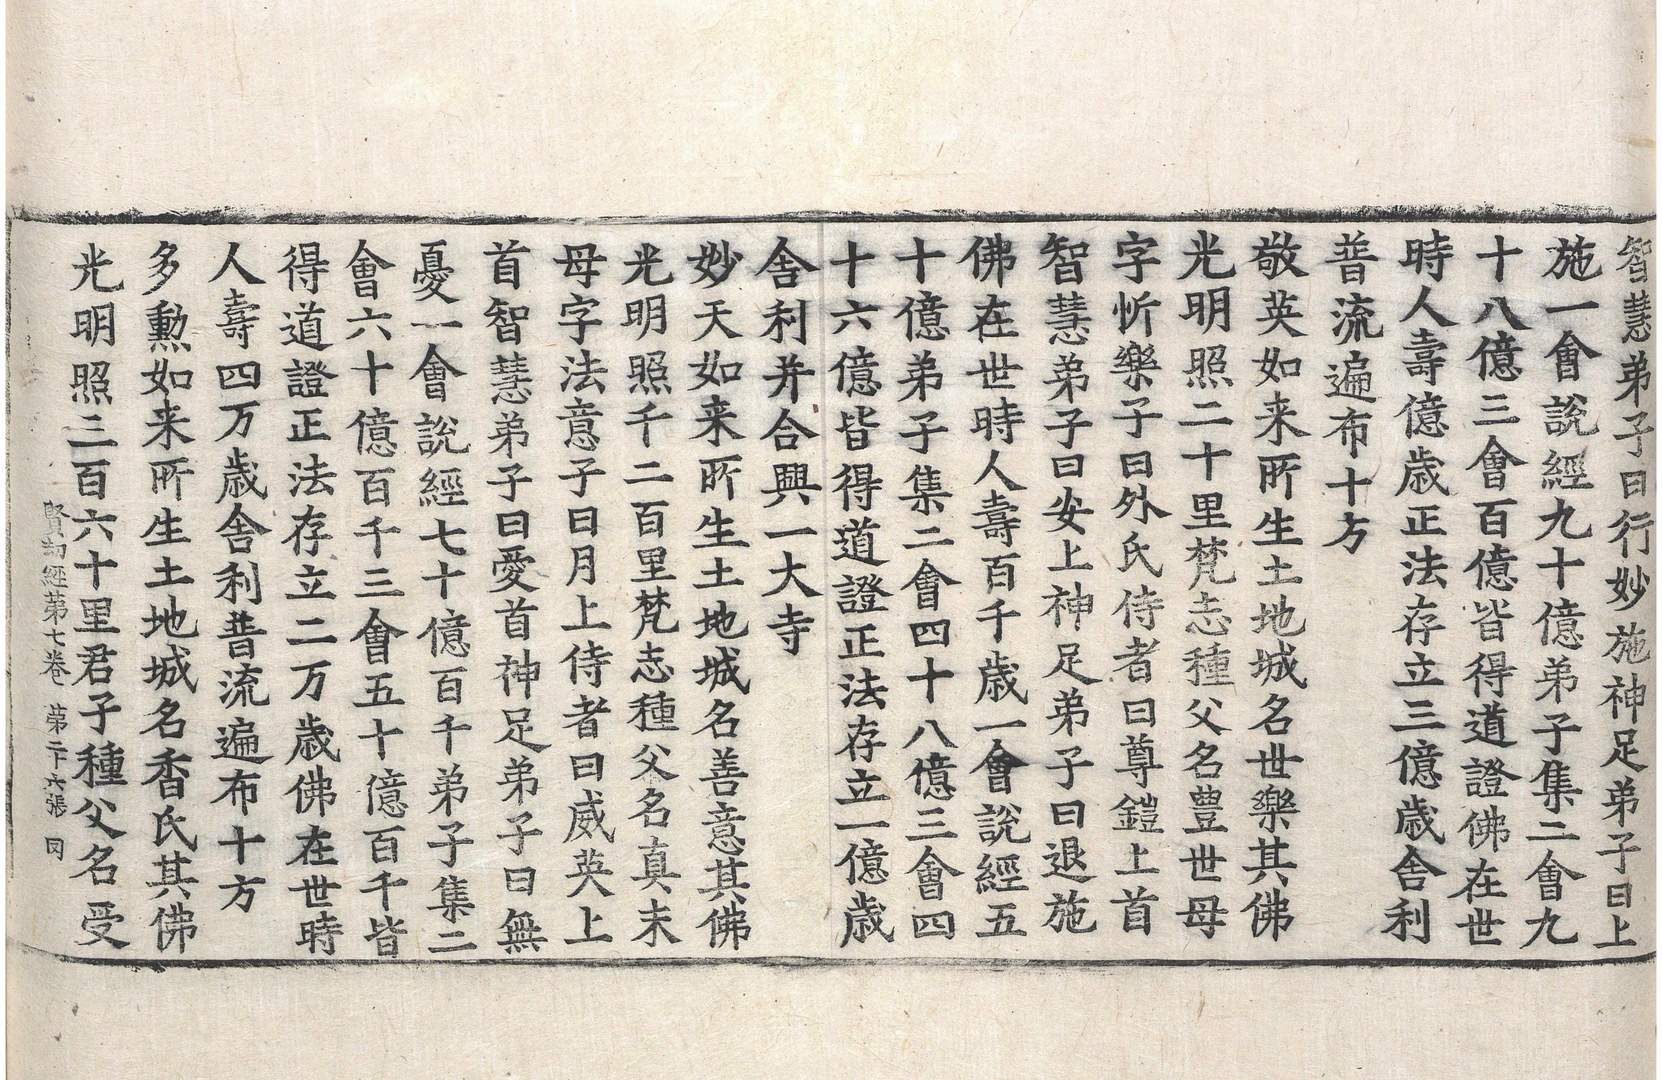 智慧弟子曰行妙施神足弟子曰上
施一會說經九十億弟子集二會九
十八億三會百億皆得道證佛在世
時人壽億歲正法存立三億歲舍利
普流遍布十方
敬英如来所生土地城名世樂其佛
光明照二十里梵志種父名豊世母
字忻樂子曰外氏侍者曰尊鎧上首
智慧弟子曰安上神足弟子曰退施
佛在世時人壽百千歲一會說經五
十億弟子集二會四十八億三會四
十六億皆得道證正法存立一億歲
舍利并合興一大寺
妙天如来所生土地城名善意其佛
光明照千二百里梵志種父名真末
母字法意子曰月上侍者曰威英上
首智慧弟子曰愛首神足弟子曰無
憂一會說經七十億百千弟子集二
會六十億百千三會五十億百千皆
得道證正法存立二万歲佛在世時
人壽四万歲舍利普流遍布十方
多勲如来所生土地城名香氏其佛
光明照三百六十里君子種父名受
賢刼經第七卷 第二十六張 同